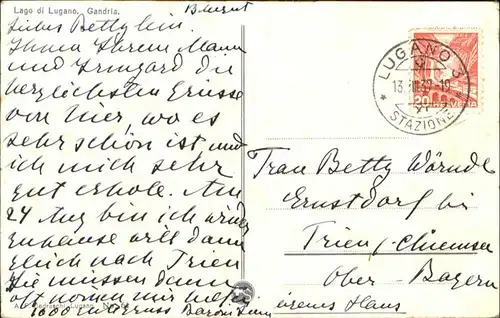 Lago di Lugano. Gandria.
Liebes Bettylein.
Ihnen Ihrem Mann
und Irmgard die
herzlichsten Grüsse
von hier, wo es
sehr schön ist und
ich mich sehr
gut erhole. Am
24 Aug bin ich wieder
zuhause will dann
gleich nach Prien
Sie müssen dann
oft komen mir helfen
1000 Gruss Baronin
LUGANO 3
STAZIONE
20 HELVETIA
Frau Betty Wörndl
Ernstdorf bei
Prien/Chiemsee
Ober-Bayern
eigenes Haus